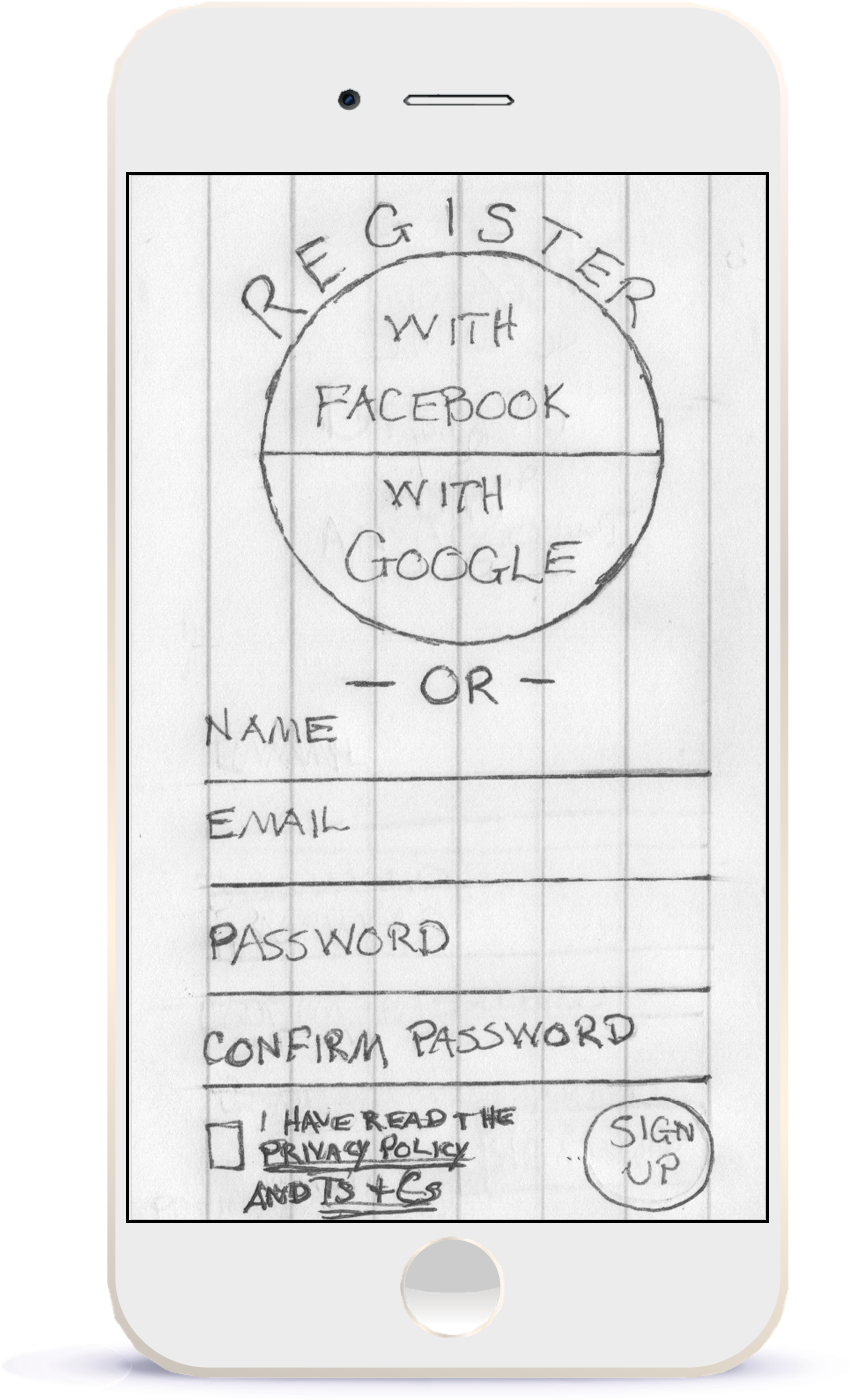 REGISTER
WITH
FACEBOOK
WITH
GOOGLE
- OR -
NAME
EMAIL
PASSWORD
CONFIRM PASSWORD
I HAVE READ THE
PRIVACY POLICY
AND TS + Cs
SIGN
UP